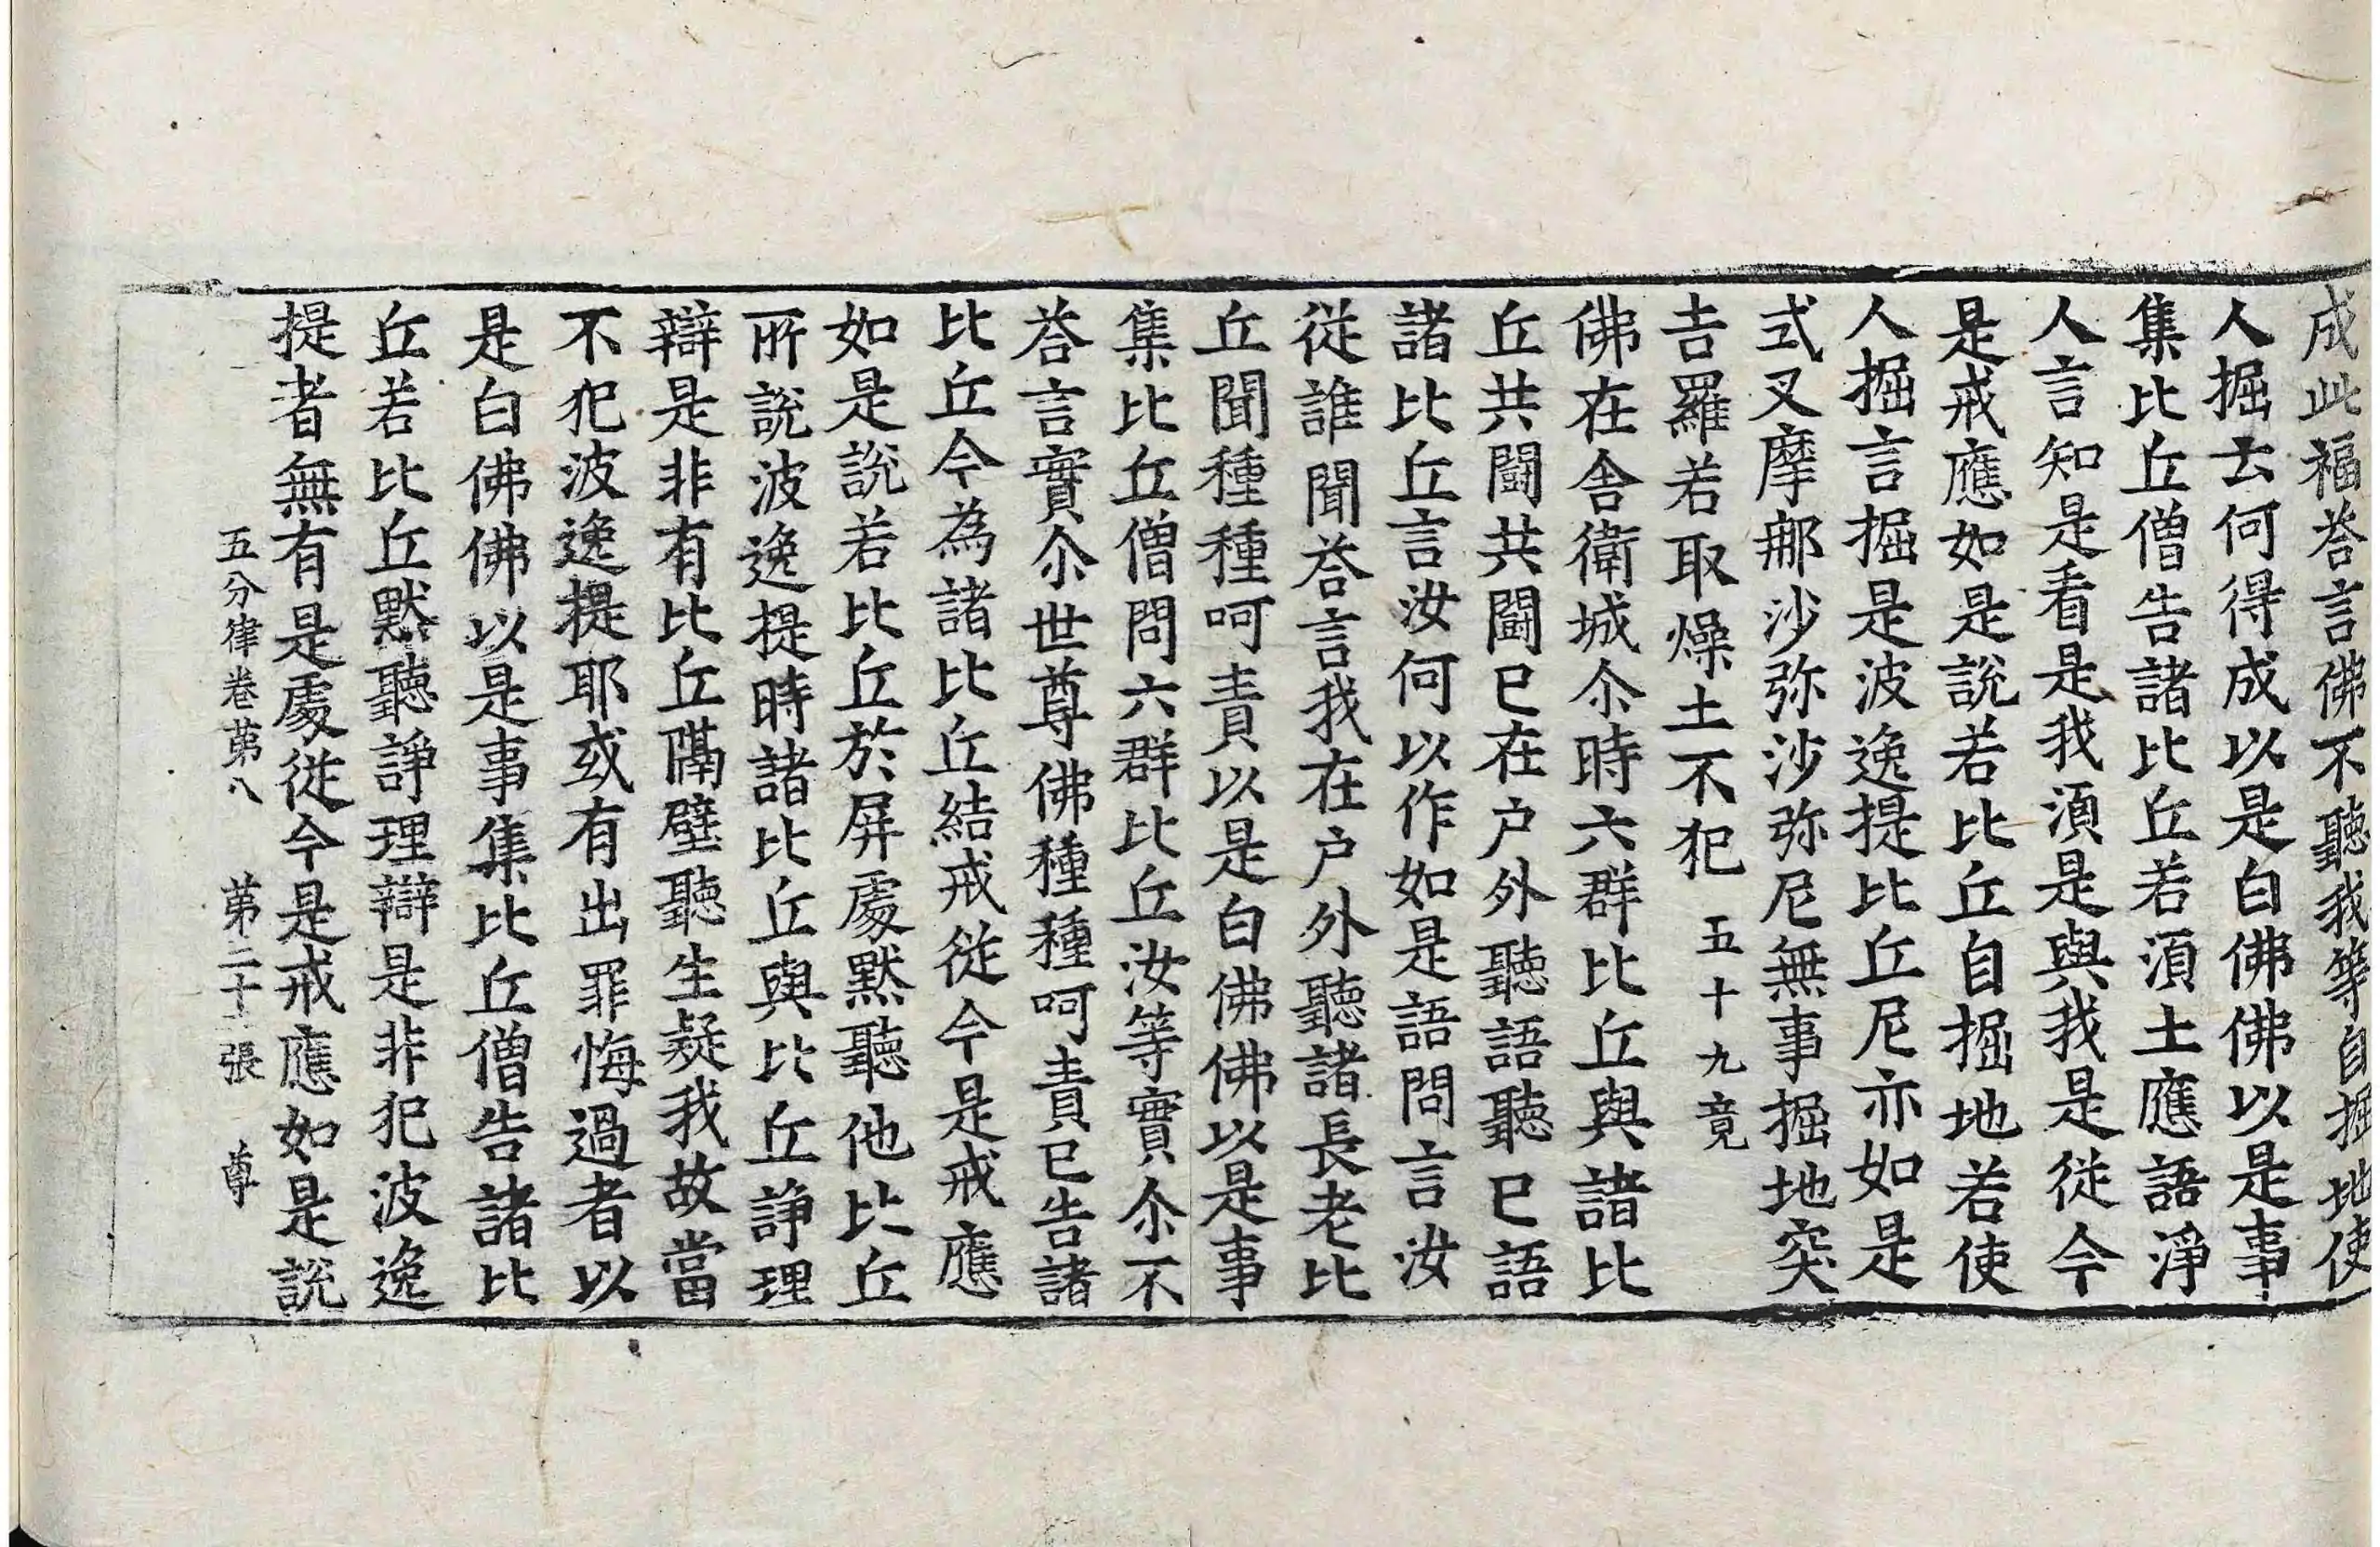 成此福荅言佛不聽我等自掘地使
人掘去何得成以是白佛佛以是事
集比丘僧告諸比丘若湏土應語淨
人言知是看是我湏是與我是從今
是戒應如是說若比丘自掘地若使
人掘言掘是波逸提比丘尼亦如是
式叉摩郍沙弥沙弥尼無事掘地突
吉羅若取燥土不犯 五十九竟
佛在舍衛城尒時六群比丘與諸比
丘共闘共闘已在户外聽語聽已語
諸比丘言汝何以作如是語問言汝
從誰聞荅言我在户外聽諸長老比
丘聞種種呵責以是白佛佛以是事
集比丘僧問六群比丘汝等實尒不
荅言實尒世尊佛種種呵責已告諸
比丘今為諸比丘結戒從今是戒應
如是說若比丘於屏處黙聽他比丘
所說波逸提時諸比丘與比丘諍理
辯是非有比丘隔壁聽生疑我故當
不犯波逸提耶或有出罪悔過者以
是白佛佛以是事集比丘僧告諸比
丘若比丘黙聽諍理辯是非犯波逸
提者無有是處從今是戒應如是說
五分律卷苐八 苐二十張 尊